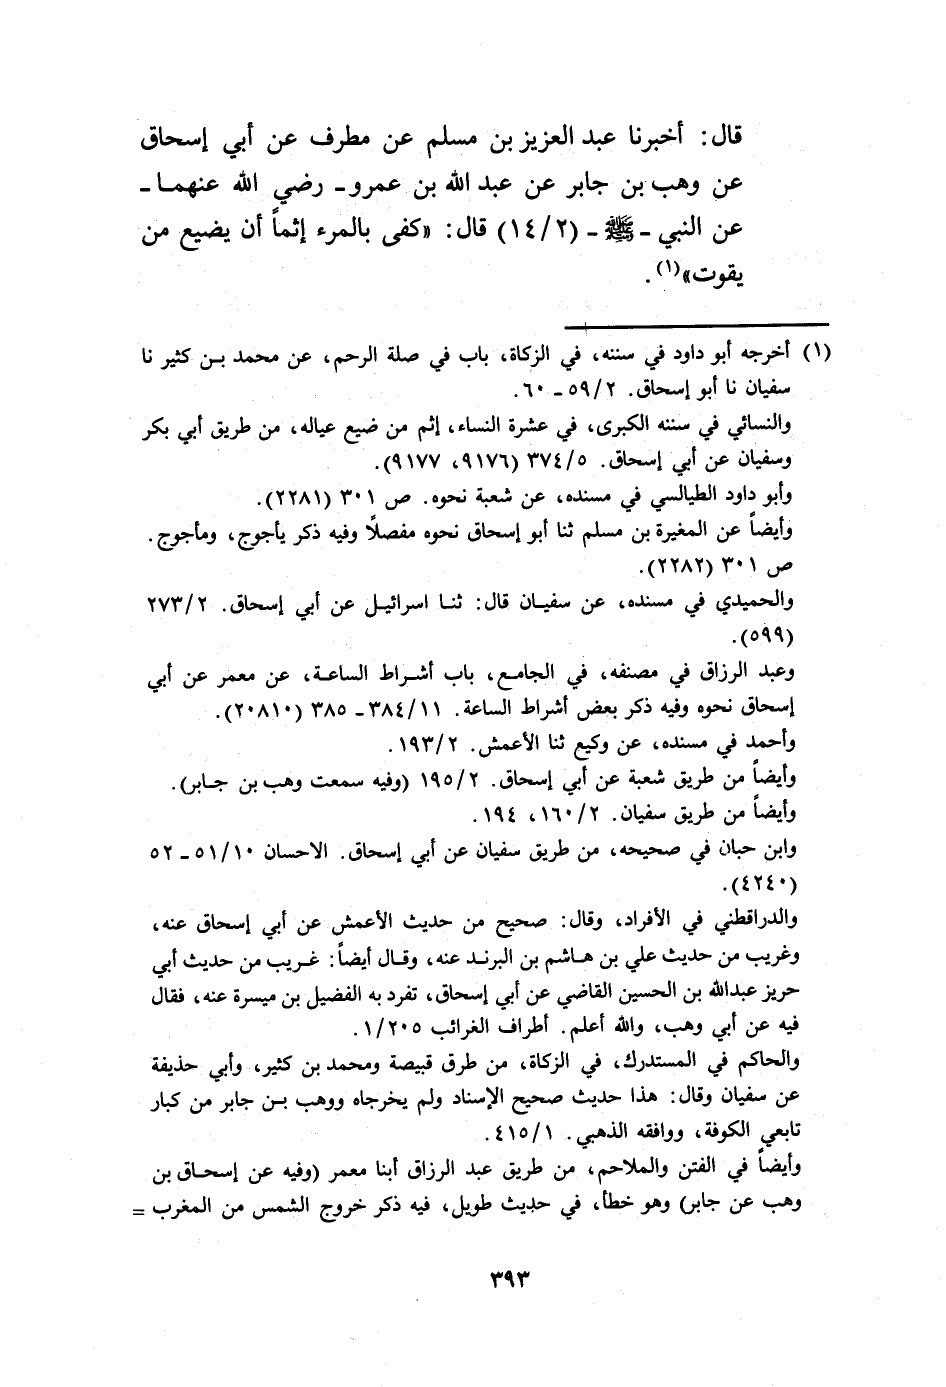 قال: أخبرنا عبد العزيز بن مسلم عن مطرف عن أبي إسحاق
عن وهب بن جابر عن عبد الله بن عمرو ـ رضي الله عنهما ـ
عن النبي ـ ﷺ ـ (١٤/٢) قال: «كفى بالمرء إثماً أن يضيع من
يقوت»(١).
(١) أخرجه أبو داود في سننه، في الزكاة، باب في صلة الرحم، عن محمد بن كثير نا
سفيان نا أبو إسحاق. ٥٩/٢ ـ ٦٠.
والنسائي في سننه الكبرى، في عشرة النساء، إثم من ضيع عياله، من طريق أبي بكر
وسفيان عن أبي إسحاق. ٣٧٤/٥ (٩١٧٦، ٩١٧٧).
وأبو داود الطيالسي في مسنده، عن شعبة نحوه. ص ٣٠١ (٢٢٨١).
وأيضاً عن المغيرة بن مسلم ثنا أبو إسحاق نحوه مفصلاً وفيه ذكر يأجوج، ومأجوج.
ص ٣٠١ (٢٢٨٢).
والحميدي في مسنده، عن سفيان قال: ثنا اسرائيل عن أبي إسحاق. ٢٧٣/٢
(٥٩٩).
وعبد الرزاق في مصنفه، في الجامع، باب أشراط الساعة، عن معمر عن أبي
إسحاق نحوه وفيه ذكر بعض أشراط الساعة. ٣٨٤/١١ ـ ٣٨٥ (٢٠٨١٠).
وأحمد في مسنده، عن وكيع ثنا الأعمش. ١٩٣/٢.
وأيضاً من طريق شعبة عن أبي إسحاق. ١٩٥/٢ (وفيه سمعت وهب بن جابر).
وأيضاً من طريق سفيان. ١٦٠/٢، ١٩٤.
وابن حبان في صحيحه، من طريق سفيان عن أبي إسحاق. الاحسان ٥١/١٠ ـ ٥٢
(٤٢٤٠).
والدراقطني في الأفراد، وقال: صحيح من حديث الأعمش عن أبي إسحاق عنه،
وغريب من حديث علي بن هاشم بن البرند عنه، وقال أيضاً: غريب من حديث أبي
حريز عبدالله بن الحسين القاضي عن أبي إسحاق، تفرد به الفضيل بن ميسرة عنه، فقال
فيه عن أبي وهب، والله أعلم. أطراف الغرائب ١/٢٠٥.
والحاكم في المستدرك، في الزكاة، من طرق قبيصة ومحمد بن كثير، وأبي حذيفة
عن سفيان وقال: هذا حديث صحيح الإسناد ولم يخرجاه ووهب بن جابر من كبار
تابعي الكوفة، ووافقه الذهبي. ٤١٥/١.
وأيضاً في الفتن والملاحم، من طريق عبد الرزاق أبنا معمر (وفيه عن إسحاق بن
وهب عن جابر) وهو خطأ، في حديث طويل، فيه ذكر خروج الشمس من المغرب =
٣٩٣